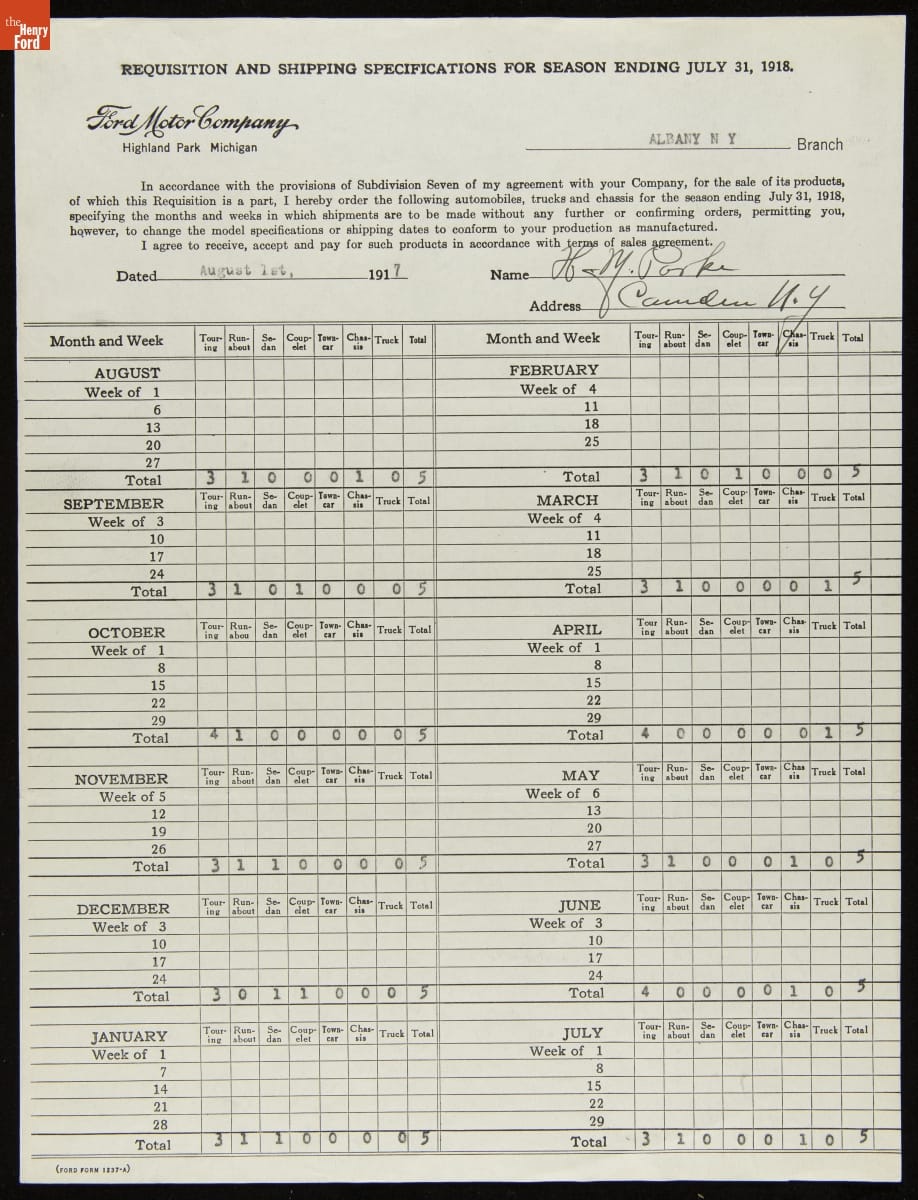 the
Henry
Ford
REQUISITION AND SHIPPING SPECIFICATIONS FOR SEASON ENDING JULY 31, 1918.
Ford Motor Company
Highland Park Michigan
ALBANY N Y Branch
In accordance with the provisions of Subdivision Seven of my agreement with your Company, for the sale of its products,
of which this Requisition is a part, I hereby order the following automobiles, trucks and chassis for the season ending July 31, 1918,
specifying the months and weeks in which shipments are to be made without any further or confirming orders, permitting you,
however, to change the model specifications or shipping dates to conform to your production as manufactured.
I agree to receive, accept and pay for such products in accordance with terms of sales agreement.
Dated August 1st, 1917 Name H M. Parke
Address Camden N.Y
Month and Week Tour-ing Run-about Se-dan Coup-elet Town-car Chas-sis Truck Total
AUGUST
Week of 1
6
13
20
27
Total 3 1 0 0 0 1 0 5
SEPTEMBER Tour-ing Run-about Se-dan Coup-elet Town-car Chas-sis Truck Total
Week of 3
10
17
24
Total 3 1 0 1 0 0 0 5
OCTOBER Tour-ing Run-abou Se-dan Coup-elet Town-car Chas-sis Truck Total
Week of 1
8
15
22
29
Total 4 1 0 0 0 0 0 5
NOVEMBER Tour-ing Run-about Se-dan Coup-elet Town-car Chas-sis Truck Total
Week of 5
12
19
26
Total 3 1 1 0 0 0 0 5
DECEMBER Tour-ing Run-about Se-dan Coup-elet Town-car Chas-sis Truck Total
Week of 3
10
17
24
Total 3 0 1 1 0 0 0 5
JANUARY Tour-ing Run-about Se-dan Coup-elet Town-car Chas-sis Truck Total
Week of 1
7
14
21
28
Total 3 1 1 0 0 0 0 5
Month and Week Tour-ing Run-about Se-dan Coup-elet Town-car Chas-sis Truck Total
FEBRUARY
Week of 4
11
18
25
Total 3 1 0 1 0 0 0 5
MARCH Tour-ing Run-about Se-dan Coup-elet Town-car Chas-sis Truck Total
Week of 4
11
18
25
Total 3 1 0 0 0 0 1 5
APRIL Tour ing Run-about Se-dan Coup-elet Town-car Chas-sis Truck Total
Week of 1
8
15
22
29
Total 4 0 0 0 0 0 1 5
MAY Tour-ing Run-about Se-dan Coup-elet Town-car Chas sis Truck Total
Week of 6
13
20
27
Total 3 1 0 0 0 1 0 5
JUNE Tour-ing Run-about Se-dan Coup-elet Town-car Chas-sis Truck Total
Week of 3
10
17
24
Total 4 0 0 0 0 1 0 5
JULY Tour-ing Run-about Se-dan Coup-elet Town-car Chas-sis Truck Total
Week of 1
8
15
22
29
Total 3 1 0 0 0 1 0 5
(FORD FORM 1237-A)